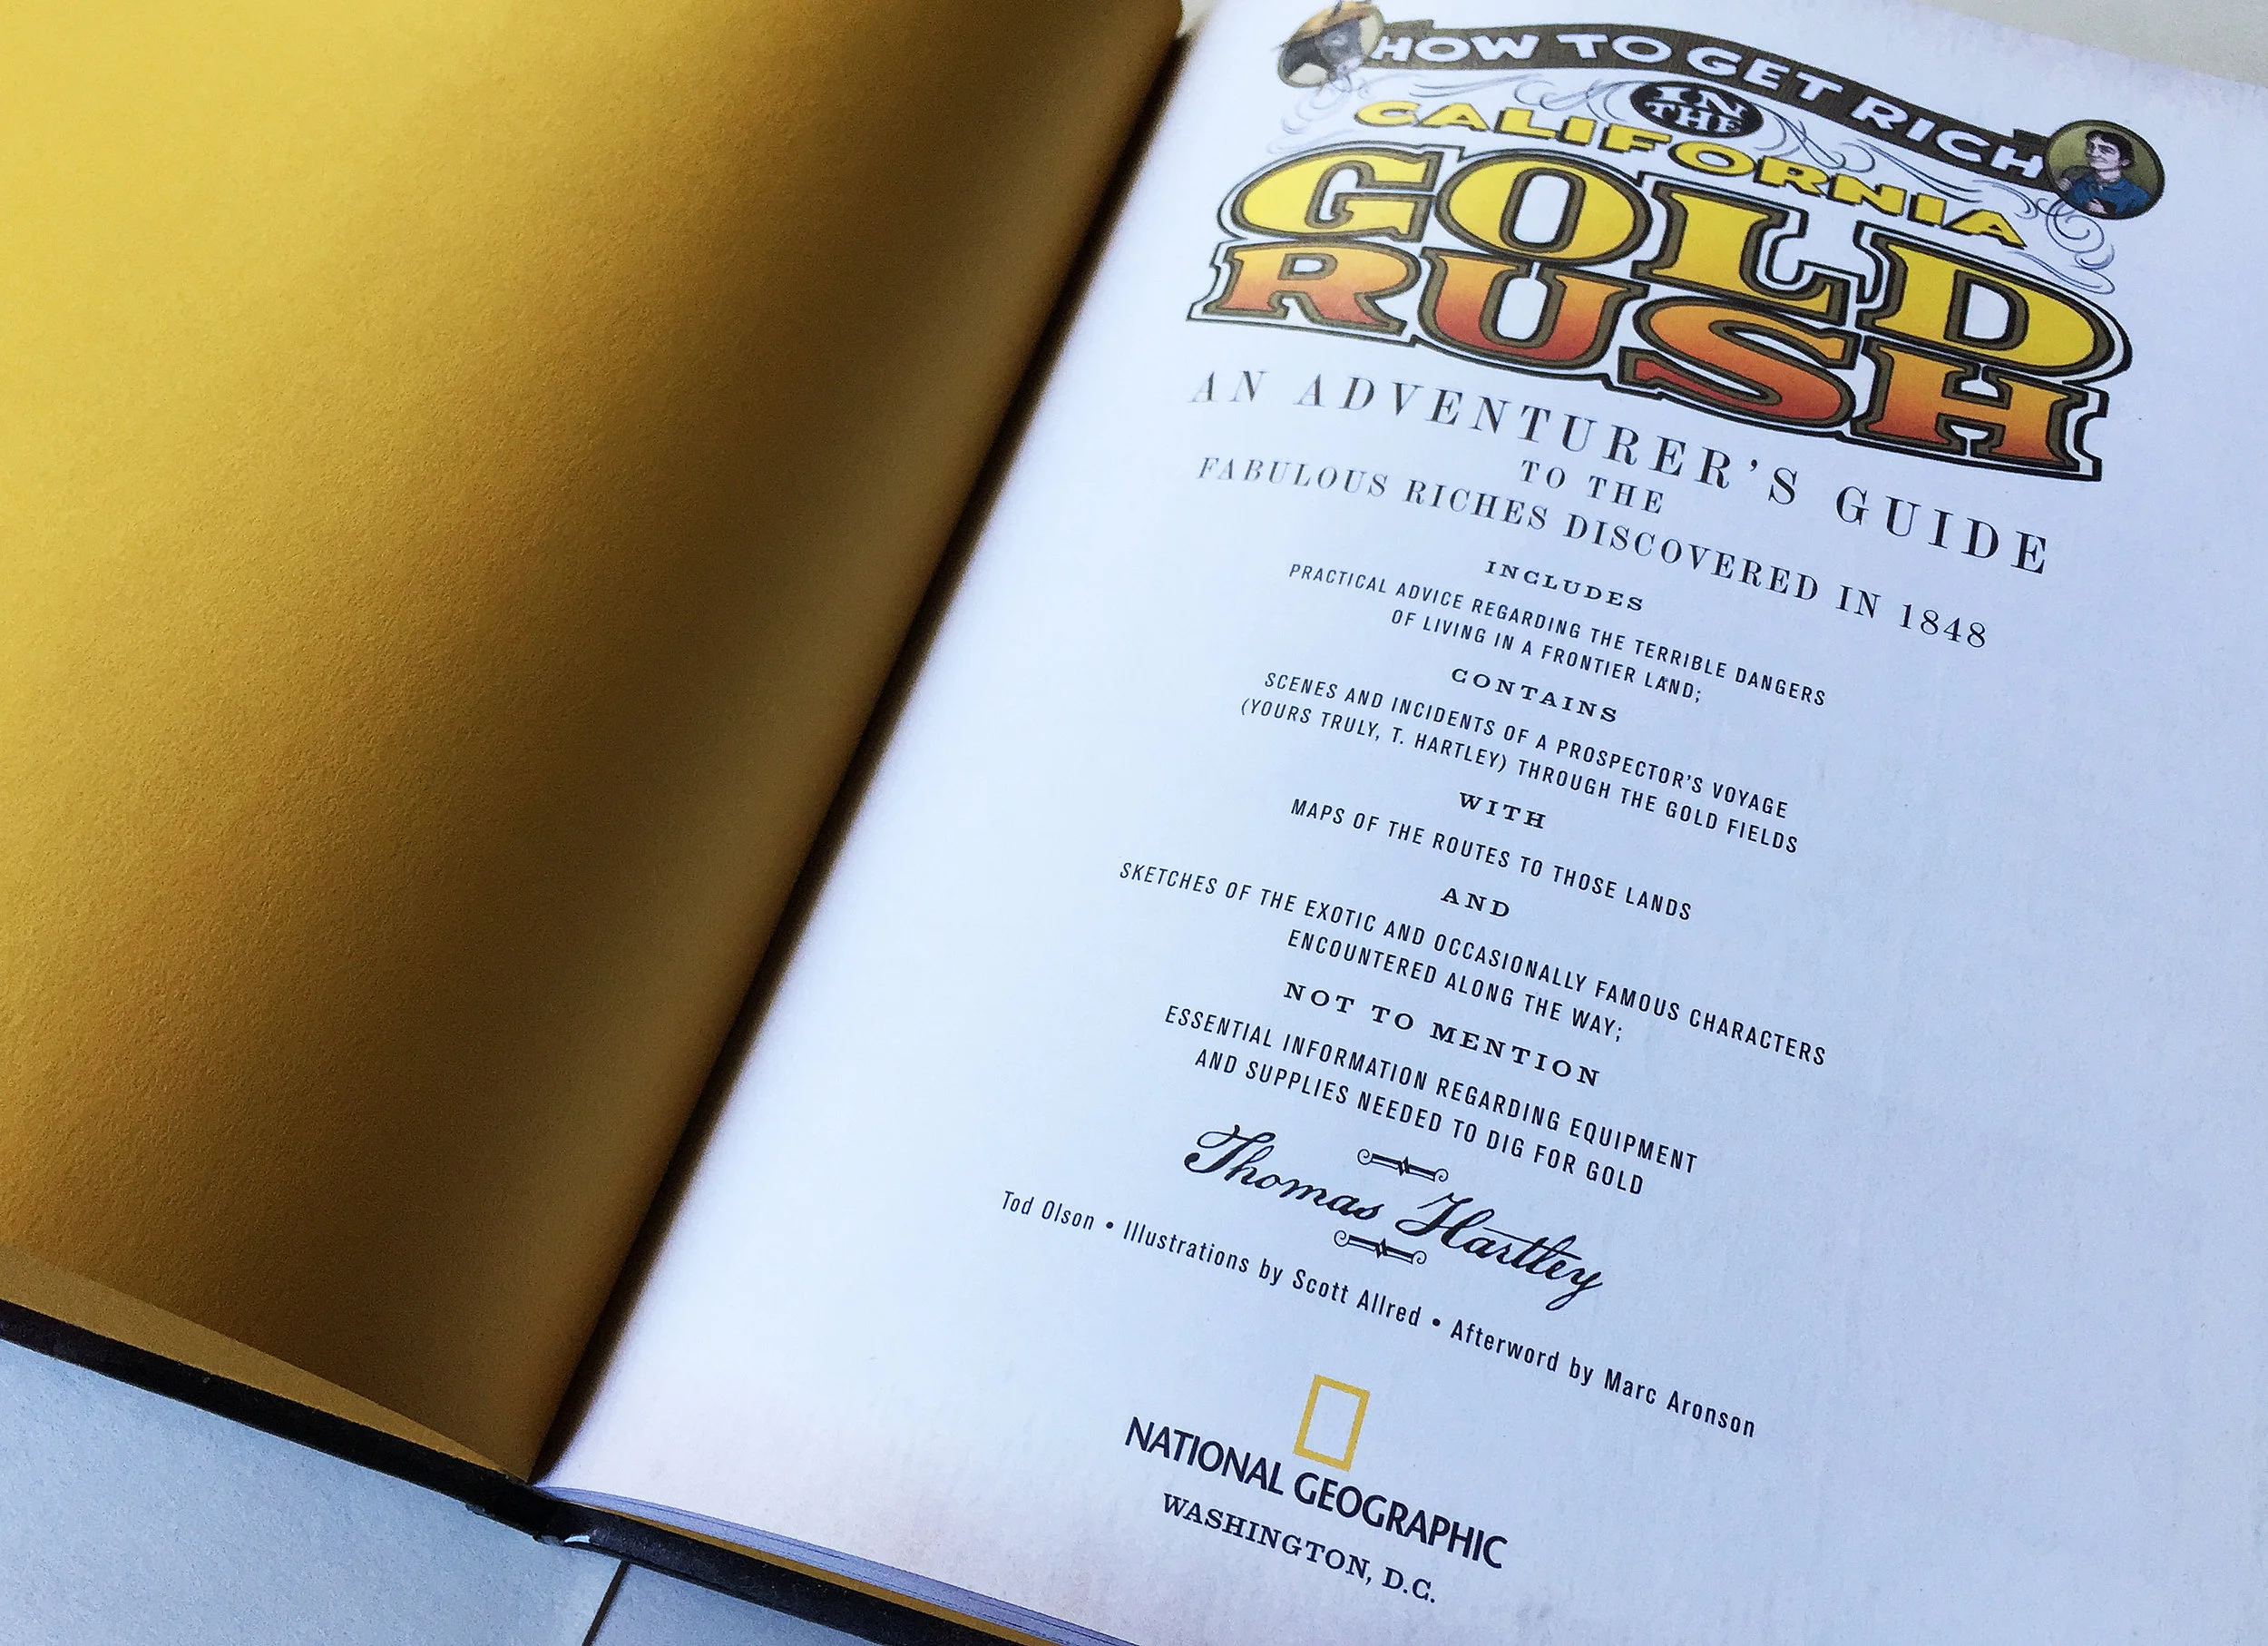 HOW TO GET RICH
IN
THE
CALIFORNIA
GOLD
RUSH
AN ADVENTURER'S GUIDE
TO THE
FABULOUS RICHES DISCOVERED IN 1848
INCLUDES
PRACTICAL ADVICE REGARDING THE TERRIBLE DANGERS
OF LIVING IN A FRONTIER LAND;
CONTAINS
SCENES AND INCIDENTS OF A PROSPECTOR'S VOYAGE
(YOURS TRULY, T. HARTLEY) THROUGH THE GOLD FIELDS
WITH
MAPS OF THE ROUTES TO THOSE LANDS
AND
SKETCHES OF THE EXOTIC AND OCCASIONALLY FAMOUS CHARACTERS
ENCOUNTERED ALONG THE WAY;
NOT TO MENTION
ESSENTIAL INFORMATION REGARDING EQUIPMENT
AND SUPPLIES NEEDED TO DIG FOR GOLD
Thomas Hartley
Tod Olson • Illustrations by Scott Allred • Afterword by Marc Aronson
NATIONAL GEOGRAPHIC
WASHINGTON, D.C.